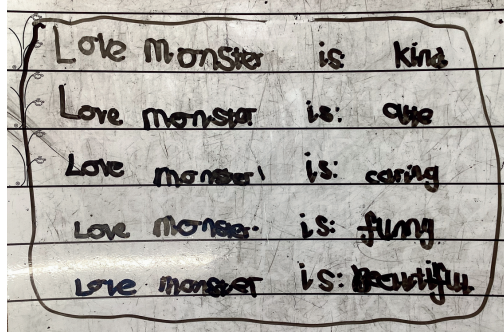 Love monster is kind
Love monster is: cute
Love monster is: caring
Love monster is: funny
Love monster is: Beautiful